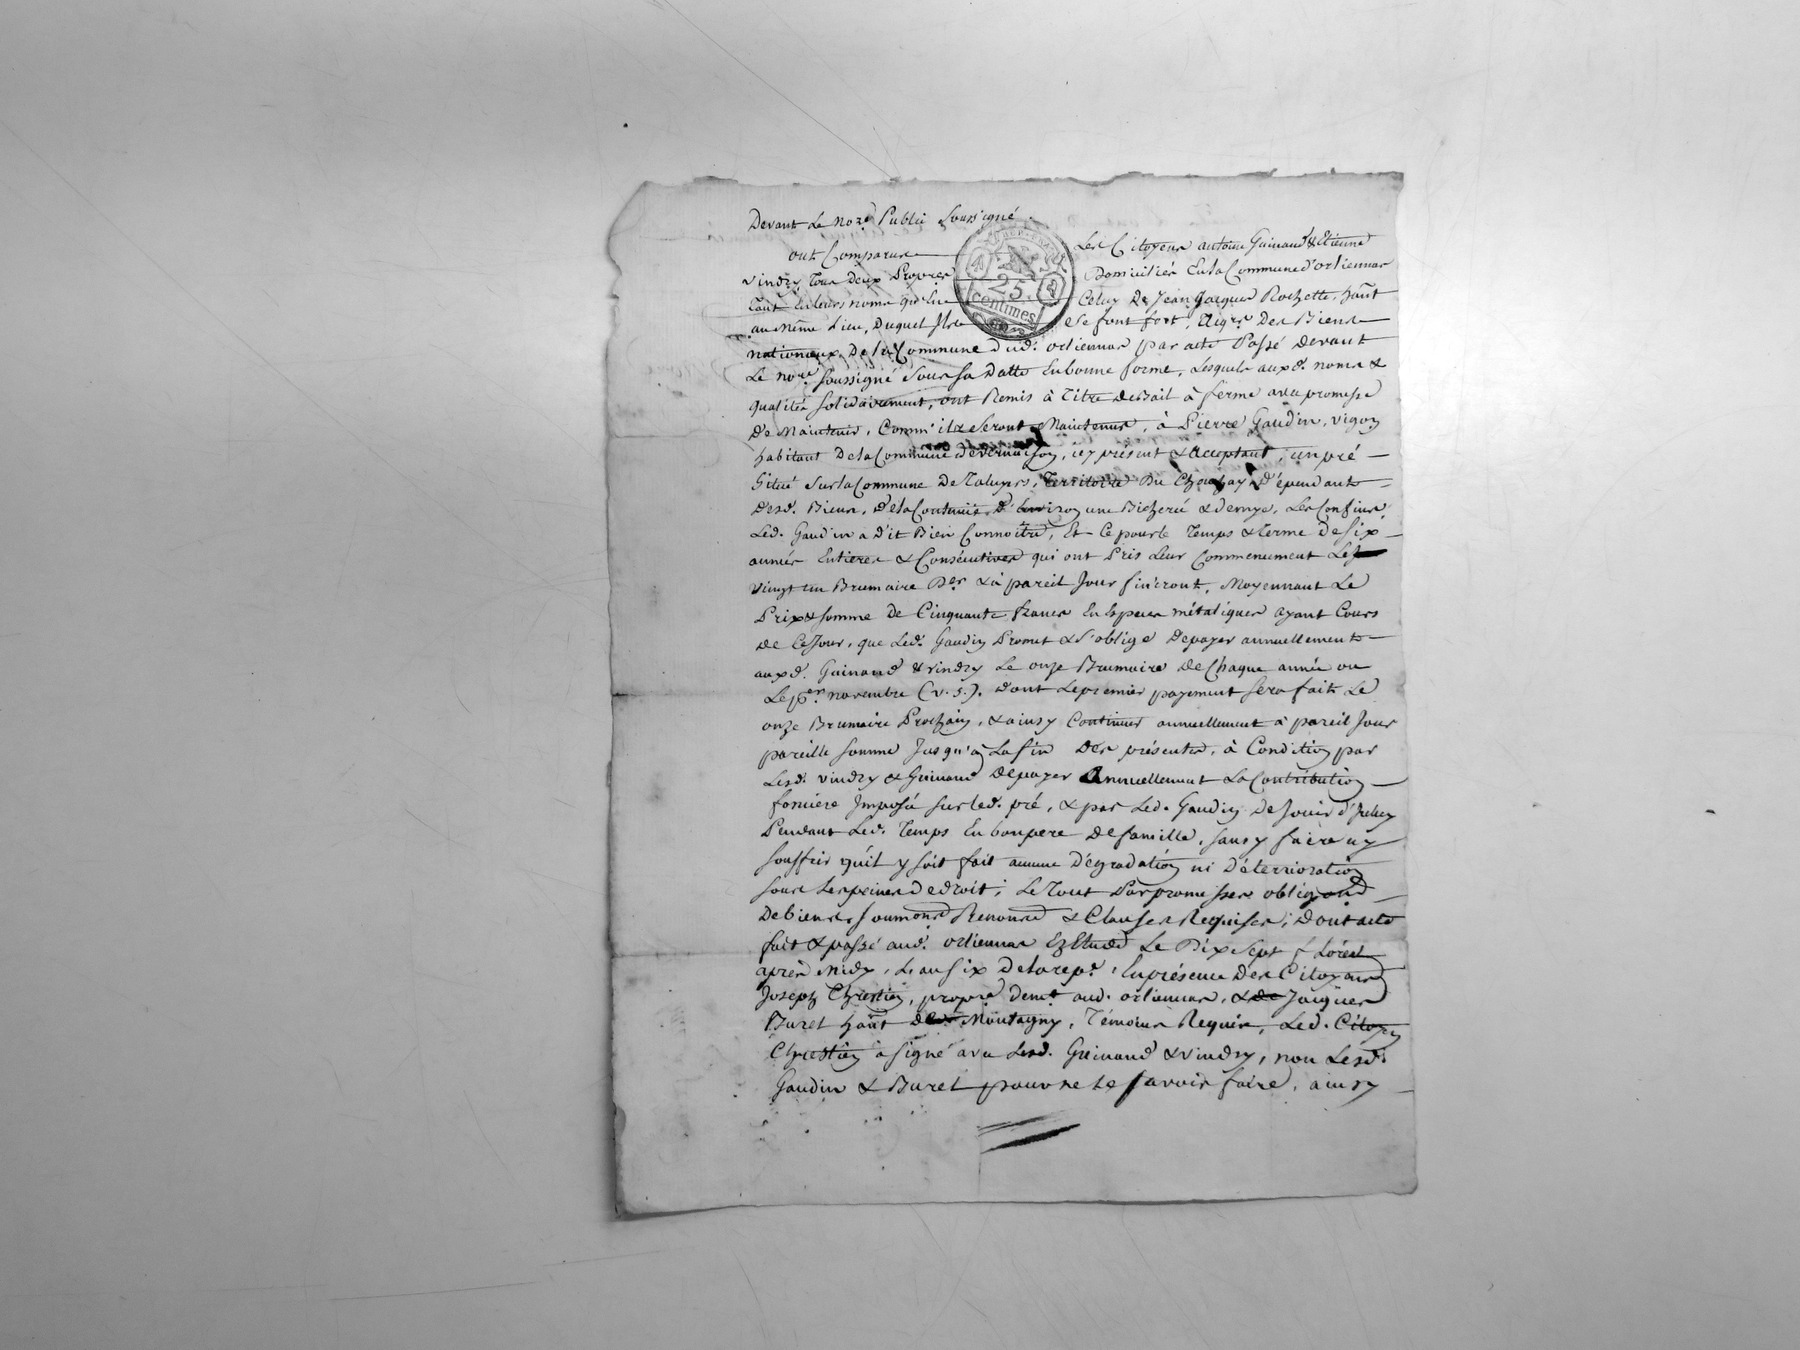 Devant Le no.re Public Soussigné.
ont Comparus Les Citoyens antoine Guinand & Etienne
vindry Tous Deux Propres Domiciliés En la Commune d'orlienas
Tant En leurs noms qu'En Celuy De Jean Jacques Rochette, hant
au même Lieu, Duquel Ils Se font fort, Des Biens
nationaux De la Commune Dud. orlienas par acte Passé devant
Le nore. soussigné Sous Sa Datte En bonne forme, Lesquels auxd. noms &
qualités solidairement, ont Remis à Titre de Bail à ferme avec promesse
De Maintenir, Comm' ils Seront Maintenus, à Pierre Gaudin, vigon
habitant De la Commune de vernaison, icy présent & acceptant, un pré
Situé Sur la Commune De Taluyrs, Territoire Du Chauffay, D'épendant
Desd. Biens, De la Contenüe D'Environ une Bicherée & demye, Les Confins
Led. Gaudin a D'it Bien Connoitre, Et Ce pour le Temps & terme De Six
années Entieres & Consécutives qui ont Pris Leur Commencement Le
vingt un Brumaire Der & à pareil Jour finiront, Moyennant Le
Prix & somme de Cinquante francs En Espèces métaliques ayant Cours
de Ce Jour, que Led. Gaudin Promet & S'oblige De payer annuellement
auxd. Guinand & vindry Le onze Brumaire De Chaque année ou
Le per. novembre (v. s.), dont Le premier payement Sera fait Le
onze Brumaire Prochain, & ainsy Continuer annuellement à pareil Jour
pareille somme Jusqu'à La fin Des présentes, à Condition par
Lesd. vindry & Guinand De payer Annuellement La Contribution
fonciere Imposée Sur led. pré, & par Led. Gaudin De Jouir d'Iceluy
Pendant Led. Temps En bon pere De famille, sans y faire ny
souffrir qu'il y soit fait aucune D'égradation ni D'éterrioration
sous Les peines De droit; Le Tout Par promesses oblig.ons
De biens, soumons Renonces & Clauses Requises; Dont acte
fait & passé aud. orlienas Ez Etude Le Dix Sept floréal
après midy, L'an six De la rep.e, En présence Des Citoyens
Joseph Chrestien, propre. demt. aud. orlienas, & Jacques
Buret hant Montagny, Témoins Requis, Led. Citoyen
Chrestien a signé avec Lesd. Guinand & vindry, non Lesd.
Gaudin & Buret pour ne le savoir faire, ainsy
REP. FRA.
25
centimes